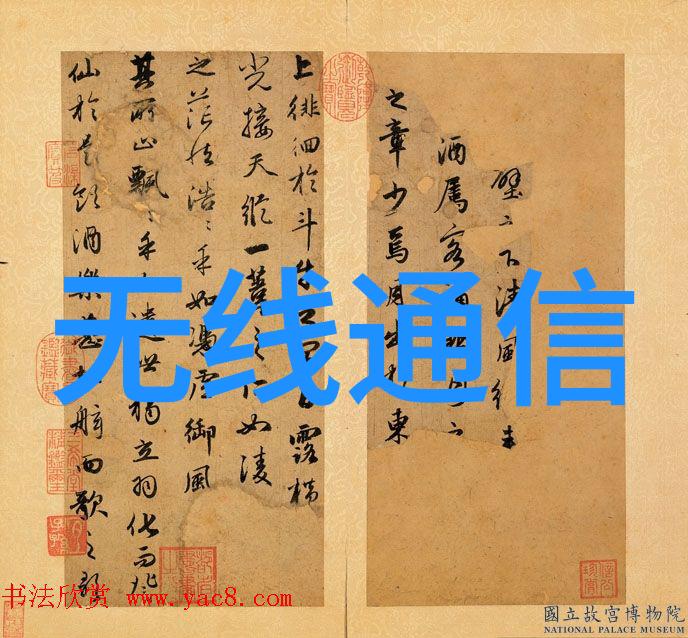 壁之下清風徐来
酒属客誦明月之
之章少焉月出於東
上徘徊於斗牛之間白露横
光接天縱一葦之所如陵
之茫然浩〻乎如馮虚御風
其所止飄〻乎如遺世獨立羽化而登
仙於是飲酒樂甚扣舷而歌之歌
无线通信
书法欣赏 www.yac8.com
國立故宮博物院
NATIONAL PALACE MUSEUM